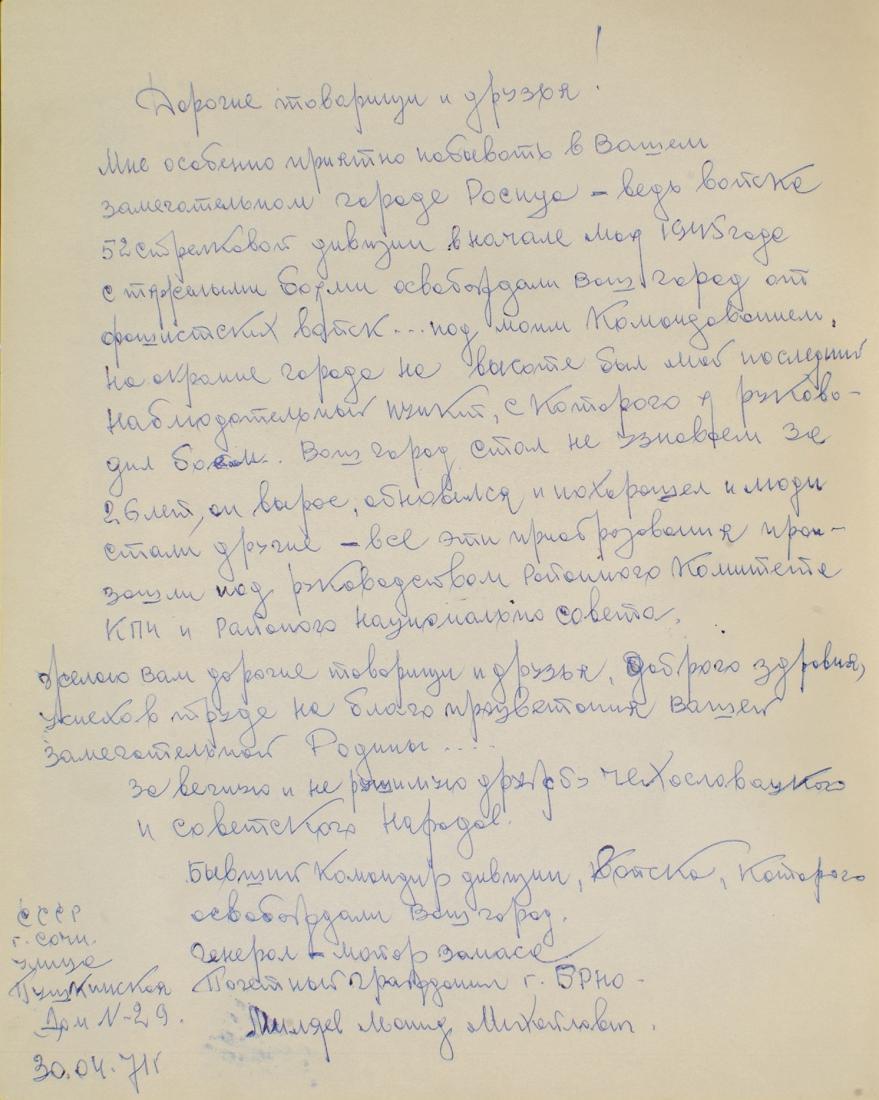 Дорогие товарищи и друзья!
Мне особенно приятно побывать в Вашем
замечательном городе Росица – ведь войска
52 стрелковой дивизии в начале мая 1945 года
с тяжелыми боями освобождали Ваш город от
фашистских войск... под моим командованием.
на окраине города на высоте был мой последний
наблюдательный пункт, с которого я руково-
дил боем. Ваш город стал не узноваем за
26 лет, он вырос, обновился и похорошел и люди
стали другие – все эти приобразования прои-
зошли под руководством Районного Комитета
КПЧ и Районого Национально совета.
желаю вам дорогие товарищи и друзья, доброго здровия,
успехов труде на благо процветания Вашей
замечательной Родины ....
За вечную и не рушимую дружбу чехословацкого
и советского народов.
Бывший командир дивизии, войска, которого
освобождали Ваш город.
СССР
г. Сочи.
улица
Пушкинская
Дом N-29.
30.04.71г
генерал-майор запаса
Почетный гражданин г. Брно -
Миляев Михайлович.